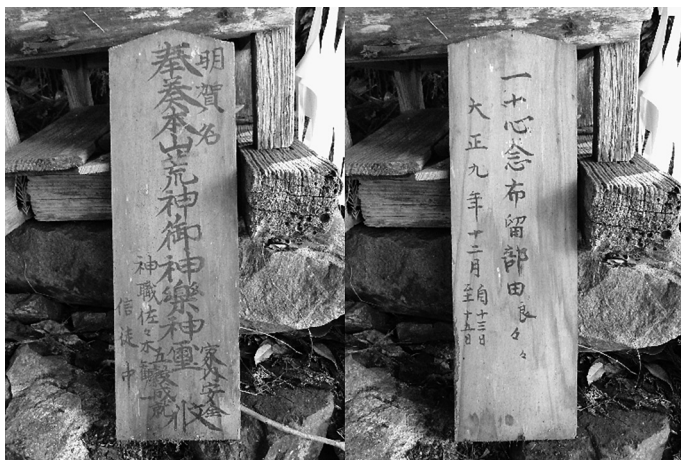 明賀名
奉奏本山荒神御神樂神璽
家内安全
五穀成就
神職佐々木
信徒中
一十心念布留部由良々々
大正九年十二月自十三日
至十五日